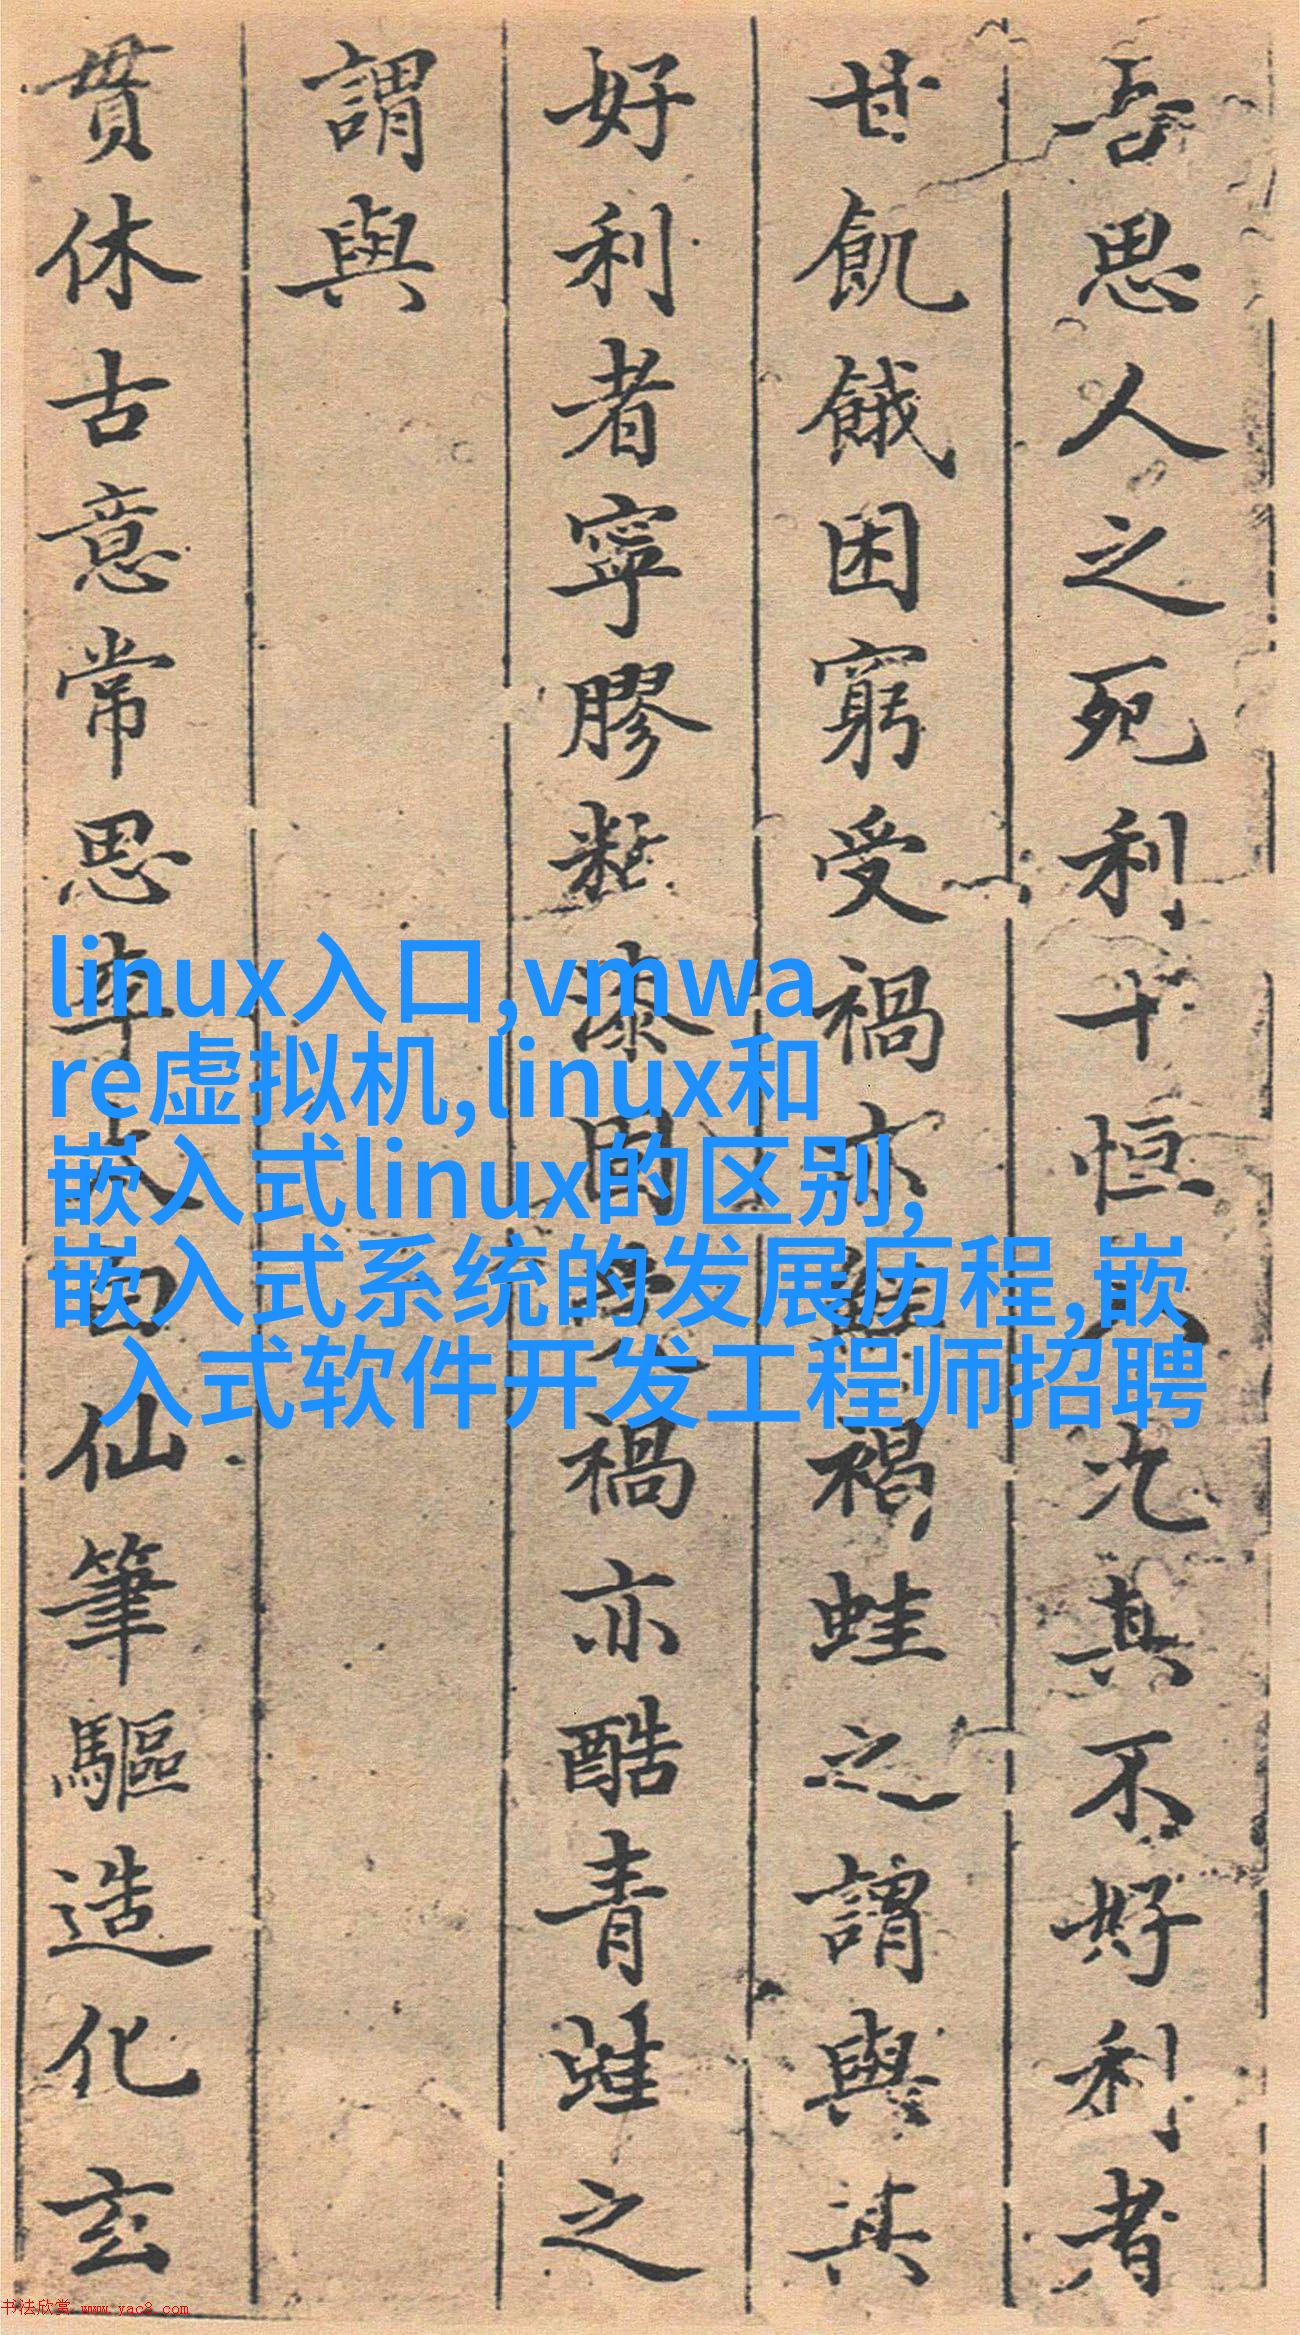 吾思人之死利十恒八其不好利者
甘飢餓困窮受禍亦蛙之謂與其
好利者寧膠漆固禍亦酷青蛙之
謂與
貫休古意常思李太白仙筆驅造化玄
linux入口,vmwa
re虚拟机,linux和
嵌入式linux的区别,
嵌入式系统的发展历程,嵌
入式软件开发工程师招聘
书法欣赏 www.yac8.com